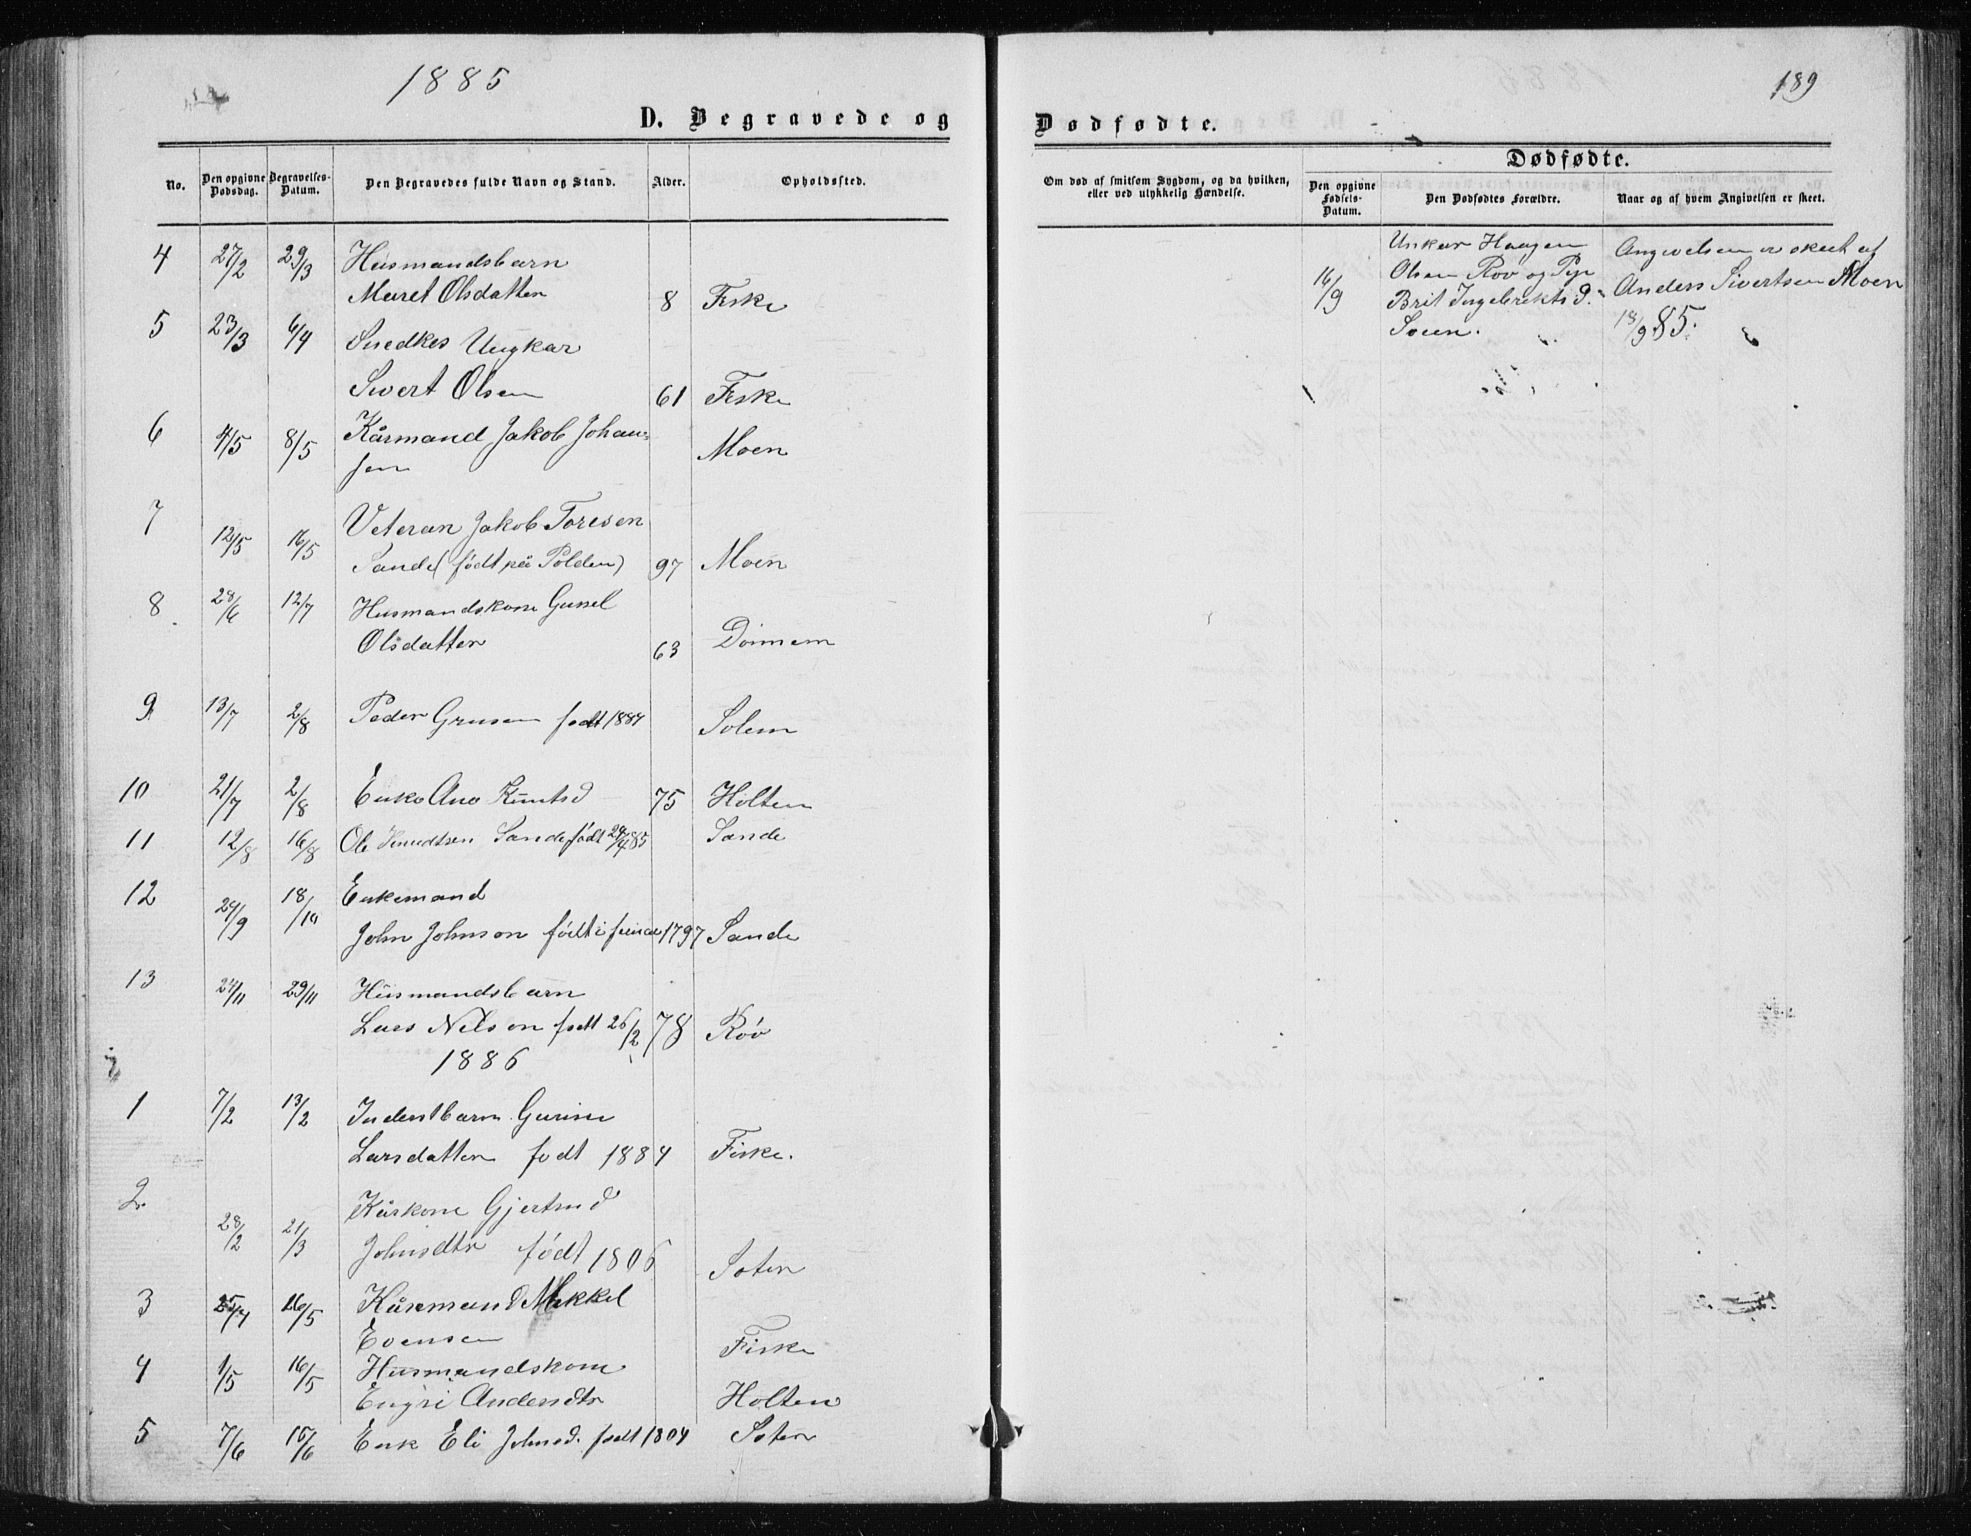 1885
189
D. Begravede og
Dødfødte.
No.
Den opgivne Dødsdag.
Begravelses-Datum.
Den Begravedes fulde Navn og Stand.
Alder.
Opholdssted.
Om død af smitsom Sygdom, og da hvilken,
eller ved ulykkelig Hændelse.
Dødfødte.
Den opgivne Fødsels-Datum.
Den Dødfødtes Forældre.
Naar og af hvem Angivelsen er skeet.
4 27/2 29/3 Husmandsbarn
Maret Olsdatter 8 Fiske
5 23/3 6/4 Snedker Ungkar
Sivert Olsen 61 Fiske
6 4/5 8/5 Kårmand Jakob Johan-
sen Moen
7 12/5 16/5 Veteran Jakob Toresen
Sande (født på Polden) 97 Moen
8 28/6 12/7 Husmandskone
Olsdatter 63
9 13/7 2/8 Peder født 1884 Solem
10 21/7 2/8 Enke Ane Knutsd 75 Holten
11 12/8 16/8 Ole Knudtsen Sande født 85 Sande
12 29/9 18/10 Enkemand
John Johnson født i 1797 Sande
13 24/11 29/11 Husmandsbarn
Lars Nelson født 26/2 78 Røv
1886
1 7/2 13/2 Inderstbarn Gurine
Larsdatter født 1884 Fiske.
2 28/2 21/3 Kårkone Gjertrud
Johnsdtr født 1806 Soten
3 16/5 Kårmand Mikkel
Evensen Fiske
4 1/5 16/5 Husmandskone
Engri Andersdtr Holten
5 7/6 15/6 Enk Eli Johnsd. født 1804 Soten
16/9
Unkar Haagen
Olsen Røv og Pige
Brit Ingebrekts D.
Angivelsen er skeet af
Anders Sivertsen Moen
18/9 85.